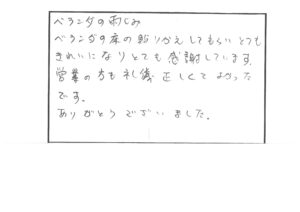 ベランダの雨じみ
ベランダの床の貼りかえしてもらいとても
きれいになりとても感謝しています。
営業の方も礼儀正しくてよかった
です。
ありがとうございました。